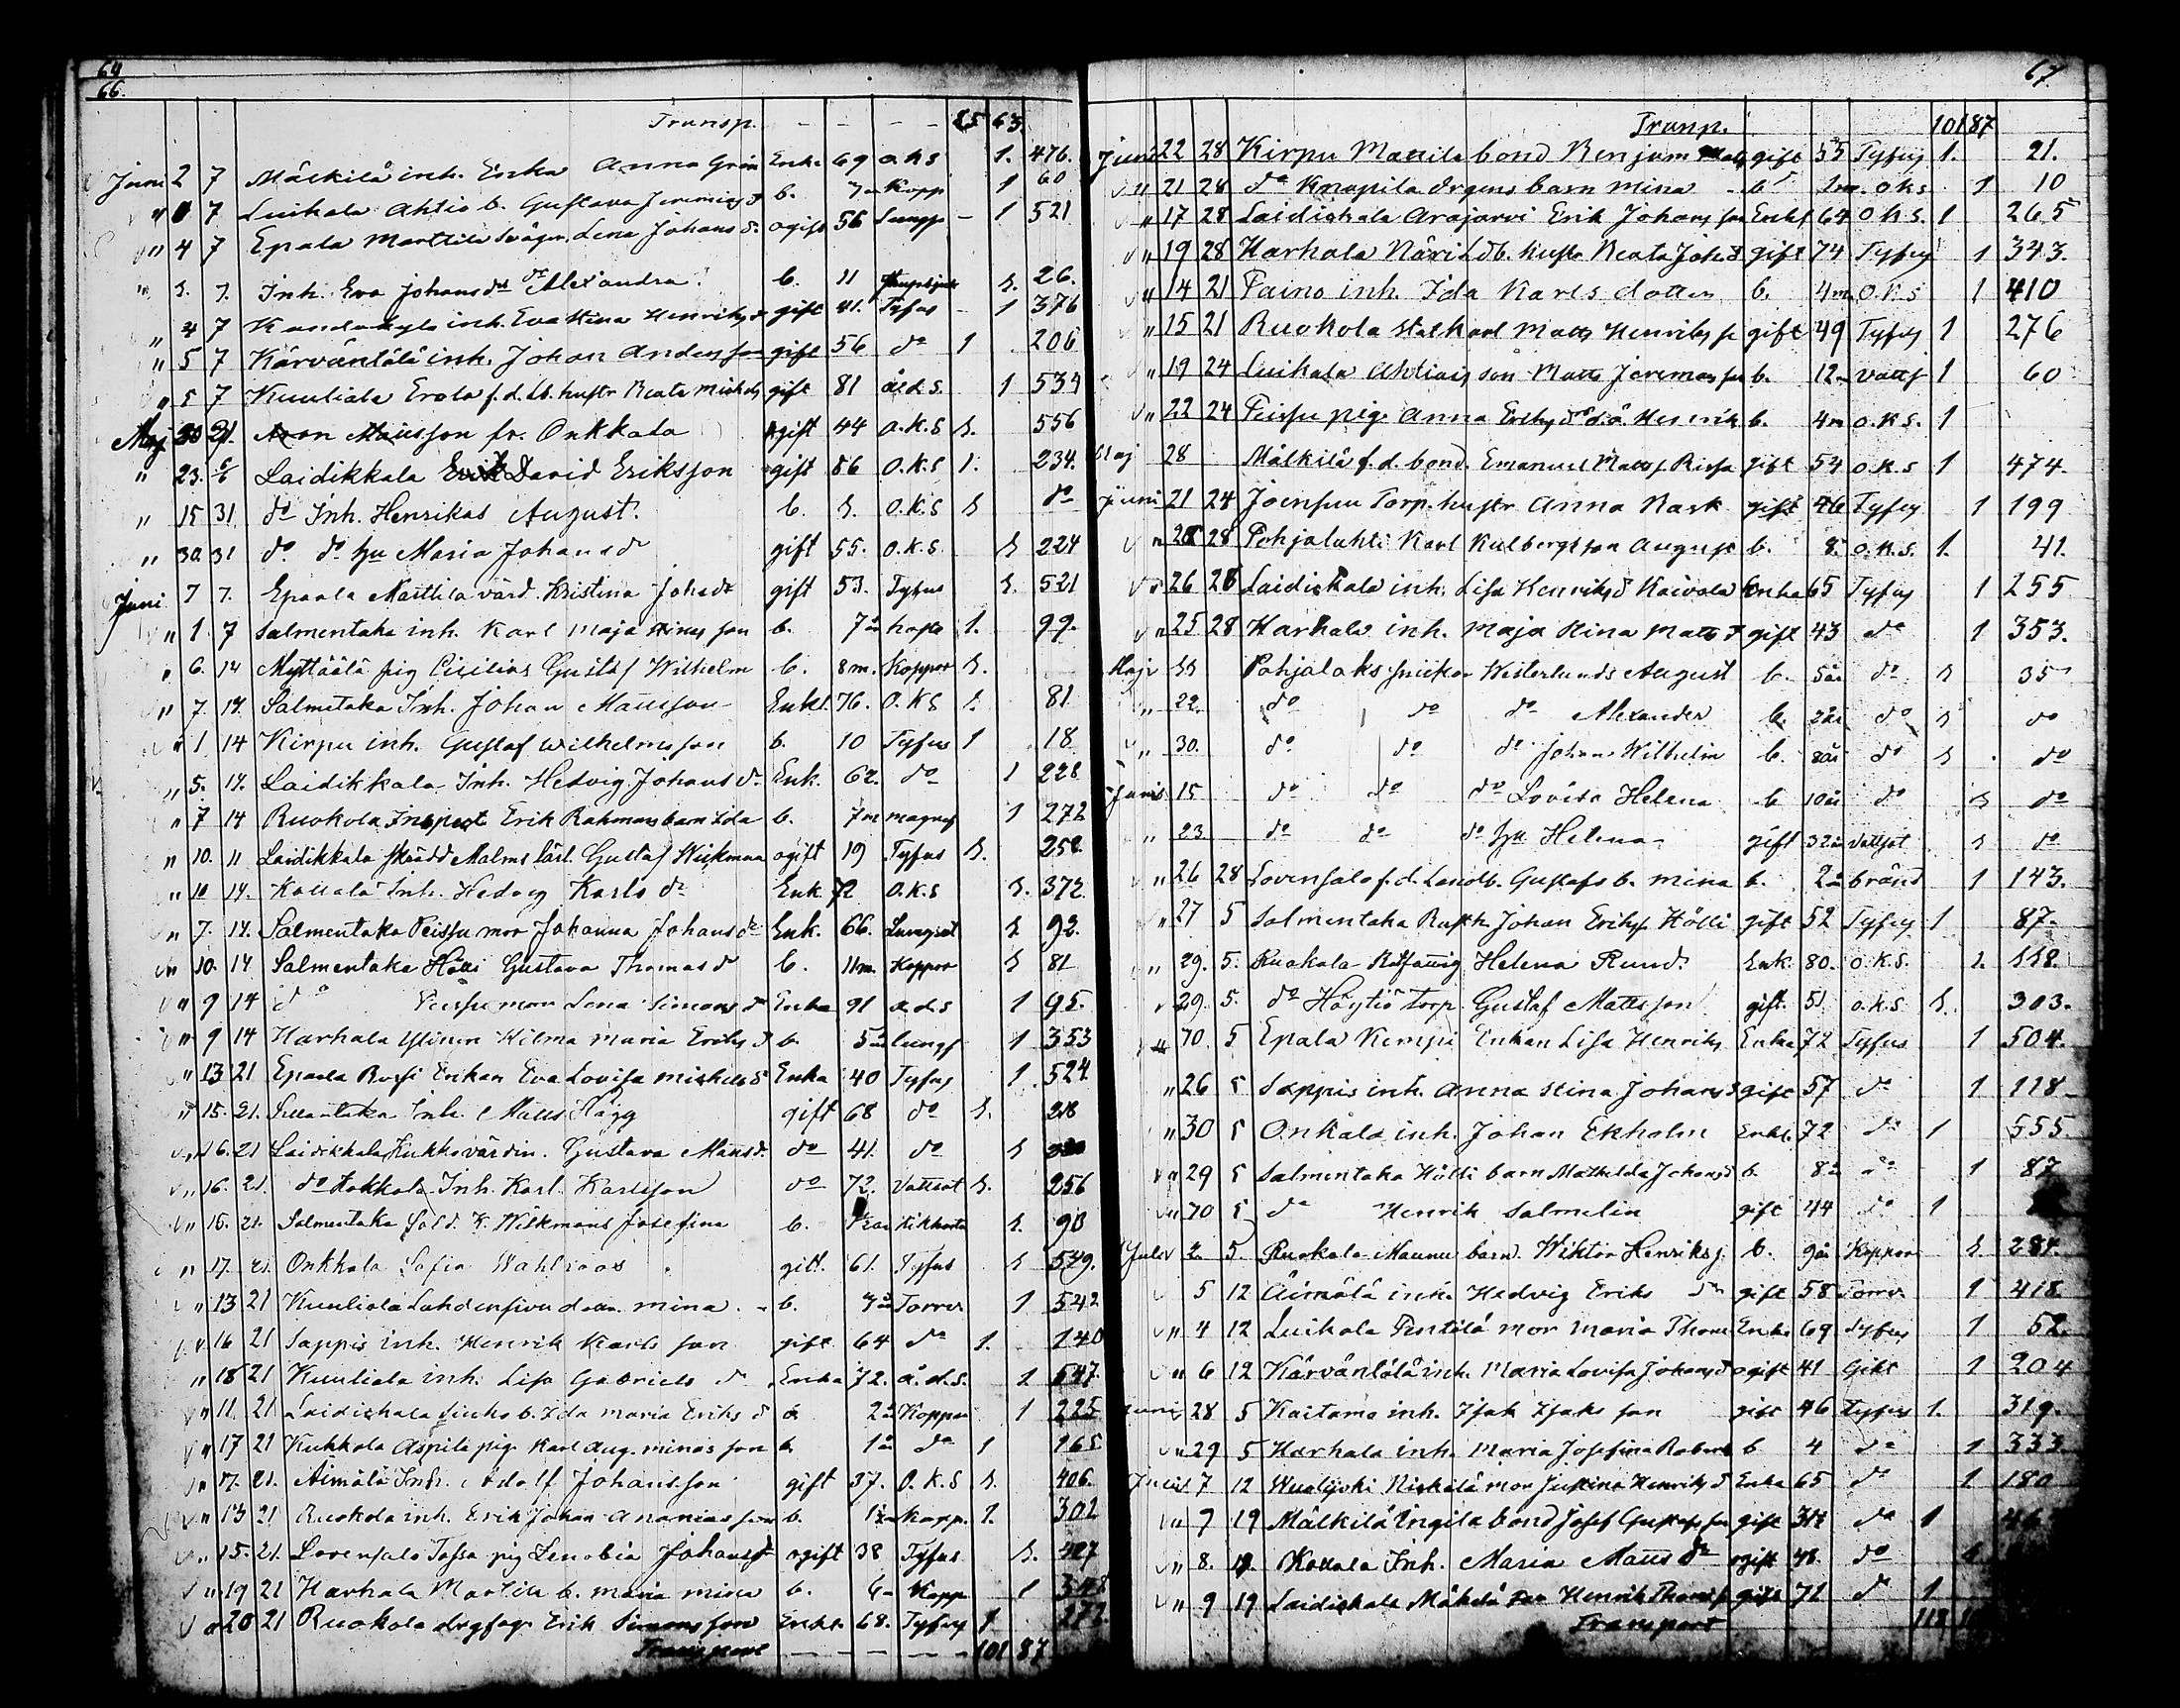 64
66.
Transp. - - - - 85 63.
Juni 2 7 Mälkilä inh. Enka Anna Grön Enka 69 o.k.s 1. 476.
" 7 Luikala Ahtio b. Gustava Jeremiasd b. Kopp 1 60
" 4 7 Epala Marttila Lena Johansd. ogift 56 Lungs - 1 521
" 7. Inh. Eva Johansdr Alexandra b. 11 1. 26.
" 4 7 inh. Eva Stina Henriksd gift 41. Tyfus - 1 376
" 5 7 Kärväntälä inh. Johan Andersson gift 56 do 1 206
" 5 7 Kuuliala Erola f.d. lb. hustr Beata Michelsd gift 81 åld.s. 1 534
Maj 30 31. Aron Mattsson fr. Onkkala gift 44 o.k.s 1. 556
" 23. Laidikkala David Eriksson gift 86 o.k.s 1. 234.
" 15 31 do Inh. Henrikas August. b. 1. o.k.s 1 do
" 30. 31 do do hu Maria Johansdr gift 55. o.k.s. 1 224
Juni 7 7. Epaala Marttila värd. Kristina Johsdr gift 53. Tyfus 1. 521
" 1. 7 Salmentaka inh. Karl Maja Stinas son b. 7 år 1. 99.
" 6. 14 Myttäälä pig Cicilias Gustaf Wilhelm b. 8m. Koppor 1.
" 7. 14. Salmetaka Inh. Johan Mattsson Enkl. 76. o.k.s 1. 81
" 1 14 Kirpu inh. Gustaf Wilhelmsson b. 10 Tyfus 1 18
" 5. 14. Laidikkala Inh. Hedvig Johansdr Enk. 62. do 1 228
" 7 14 Ruokola Inspect Erik Rahmans barn Ida b. 7m magsj 1 272
" 10. 11 Laidikkala skrädd Malms lärl. Gustaf Wickman ogift 19 Tyfus 1. 252.
" 10 14. Kottala Inh. Hedvig Karlsdr Enk. 72 o.k.s 1. 372.
" 7. 14. Salmentaka Peissu mor Johanna Johansdr Enk. 66. Lungsot 1. 92.
" 10. 14 Salmentaka Hölli Gustava Thomasd b. 11m. Koppor 1 81
" 9 14 do Peissu mor Lena Simonsd Enka 91 å.d.s 1 95.
" 9 14 Harhala Ylinen Hilma Maria Eriksd b. 5 år lungs 1 353
" 13 21 Epaala Rossi Enkan Eva Lovisa Michelsd Enka 40 Tyfus 1. 524
" 15. 21. Inh. Matts Hägg gift 68 do 1. 218
" 16. 21 Laidikkala Kukko värdin. Gustava Mattsd. do 41. do 1
" 16. 21. do Hokkola Inh. Karl Karlsson do 72. Vattsot 1. 256
" 15. 21. Salmentaka Sold. K. Wikmans Josefina b. Kikhosta 1. 90
" 17. 21. Onkkala Sofia Wahlroos gift. 61. Tyfus 1 549.
" 13 21 Kuuliala Lahdensivu dott. Mina b. Torrv. 1 542
" 16 21 Sappis inh. Henrik Karls son gift 64 do 1. 140
" 18 21 Kuuliala inh. Lisa Gabriels d Enka 72. å.d.s. 1 547.
" 11. 21 Laidikkala b. Ida Maria Eriksd b. 2 år Koppor 1 225
" 17 21 Kukkola Aspila pig. Karl Aug. Minas son b. 1 år do 1 165
" 17. 21. Äimälä Inh. Adolf Johansson gift 37. o.k.s 1. 406.
" 13 21 Ruokola inh. Erik Johan Ananiasson b. kopp. 1. 302
" 15. 21. Lovensalo Tassa pig Zenobia Johansdr ogift 38 Tyfus 1. 427
" 19 21 Harhala Marttila b. Maria Mina b. Kopp 1
" 20 21 Ruokola Erik Simonsson Enkl. 68. Tyfus 1 272.
Transport - - - - 101 87
67.
Transp. 101 87
Juni 22 28 Kirpu Mattila bond Benjam Matts gift 55 Tyfus 1. 21.
" 21 28 do Knapila drgens barn Mina b. o.k.s. 1 10
" 17 28 Laidikkala Arajärvi Erik Johansson Enkl 64 o.k.s. 1 265
" 19 28 Harhala Näri Ldb. hustr Beata Johsd gift 74 Tyfus 1 343.
" 14 21 Paino inh. Ida Karls dotter b. 4m o.k.s 1 410
" 15 21 Ruokola statkarl Matts Henriksson gift 49 Tyfus 1 276
" 19 24 Luikala Ahtiais son Matts Jeremiasson b. Vattsj 1 60
" 22 24 Peissu pig. Anna Eriksdr o.ä Henrik b. 4m o.k.s. 1
Maj 28 Mälkilä f.d. bond. Emanuel Mattss. Rissa gift 54 o.k.s 1 474
Juni 21 24 Joensuu Torp. hustr Anna Rask gift 46 Tyfus 1 199
" 28 28 Pohjalahti Karl Kulbergs son August b. 8. o.k.s. 1. 41.
" 26 28 Laidikkala inh. Lisa Henriksd Kaivola Enka 65 Tyfus 1 255
" 25 28 Harhala inh. Maja Stina Mattsd gift 43 do 1 353.
Maj Pohjalaks snickar Westerlunds August b. 5 år do 1 35
" 22. do do do Alexander b. 2 år do 1 do
" 30. do do do Johan Wilhelm b. 8 år do 1 do
Juni 15 do do do Lovisa Helena b 10 år do 1 do
" 23. do do do hu Helena gift 32 år Vattsot 1 do
" 26 28 Lovensalo f.d. Landb. Gustafs b. Mina b. 2 år bränd 1 143.
" 27 5 Salmentaka Rusth. Johan Erikss. Hölli gift 52 Tyfus 1 87
" 29. 5. Ruokola Helena Rund. Enk. 80. o.k.s. 1. 112.
" 29. 5. do Höytiö Torp Gustaf Mattsson gift. 51 o.k.s. 1. 303.
" 30. 5 Epala Kempi Enkan Lisa Henriks Enka 72 Tyfus 1 504.
" 26 5 Sappis inh. Anna Stina Johansd gift 57 do 1 118
" 30 5 Onkala inh. Johan Ekholm Enkl. 72 do 1 555.
" 29 5 Salmentaka Hölli barn Mathilda Johansd b. 8 år do 1 87
" 30 5 do Henrik Salmelin gift 44 do 1
Juli 2. 5. Ruokola Maunu barn. Wiktor Henrikss. b. 9 år Koppor 1. 284.
5 12 Äimälä inh. Hedvig Eriks dr gift 58 Torrv. 1 418.
" 4 12 Luikala Pentilä mor Maria Thoms Enka 69 Tyfus 1 52.
" 6 12 Kärväntälä inh. Maria Lovisa Johansd ogift 41 Gikt 1 204
Juni 28 5 Kaitamo inh. Isak Isaks son gift 46 Tyfus 1. 319.
" 29 5 Harhala inh. Maria Josefina Roberts b 4 do 1 333
Juli 7 12 Wuolijoki Niskälä mor Justina Henriksd Enka 65 do 1 180
" 9 19 Mälkilä Ingila bond Josef Gustafsson gift do 1
" 8. 19. Kottala Inh. Maria Matts dr ogift 48. do 1
" 9 19 Laidikkala Mäkelä Henrik Thomss gift 71 do 1.
Transport 118